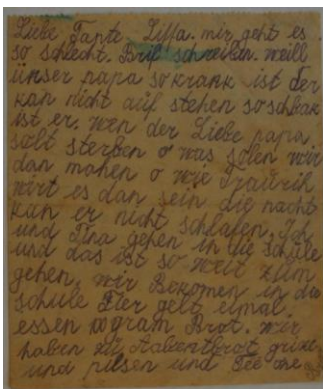 Liebe Tante Lissa. mir geht es
so schlecht. Brif schreiben. weill
unser papa so krank ist der
kan nicht auf stehen so schwak
ist er. wen der Liebe papa
solt sterben o was solen wir
dan mahen o wie Traurik
wirt es dan sein die nacht
kan er nicht schlafen. Ich
und Tina gehen in die schule
und das ist so weit zum
gehen. wir Bekomen in die
schule Hier gelt eimal.
essen gram Brot. wir
haben zu Abentbrot grüze
und pilsen und Tee one